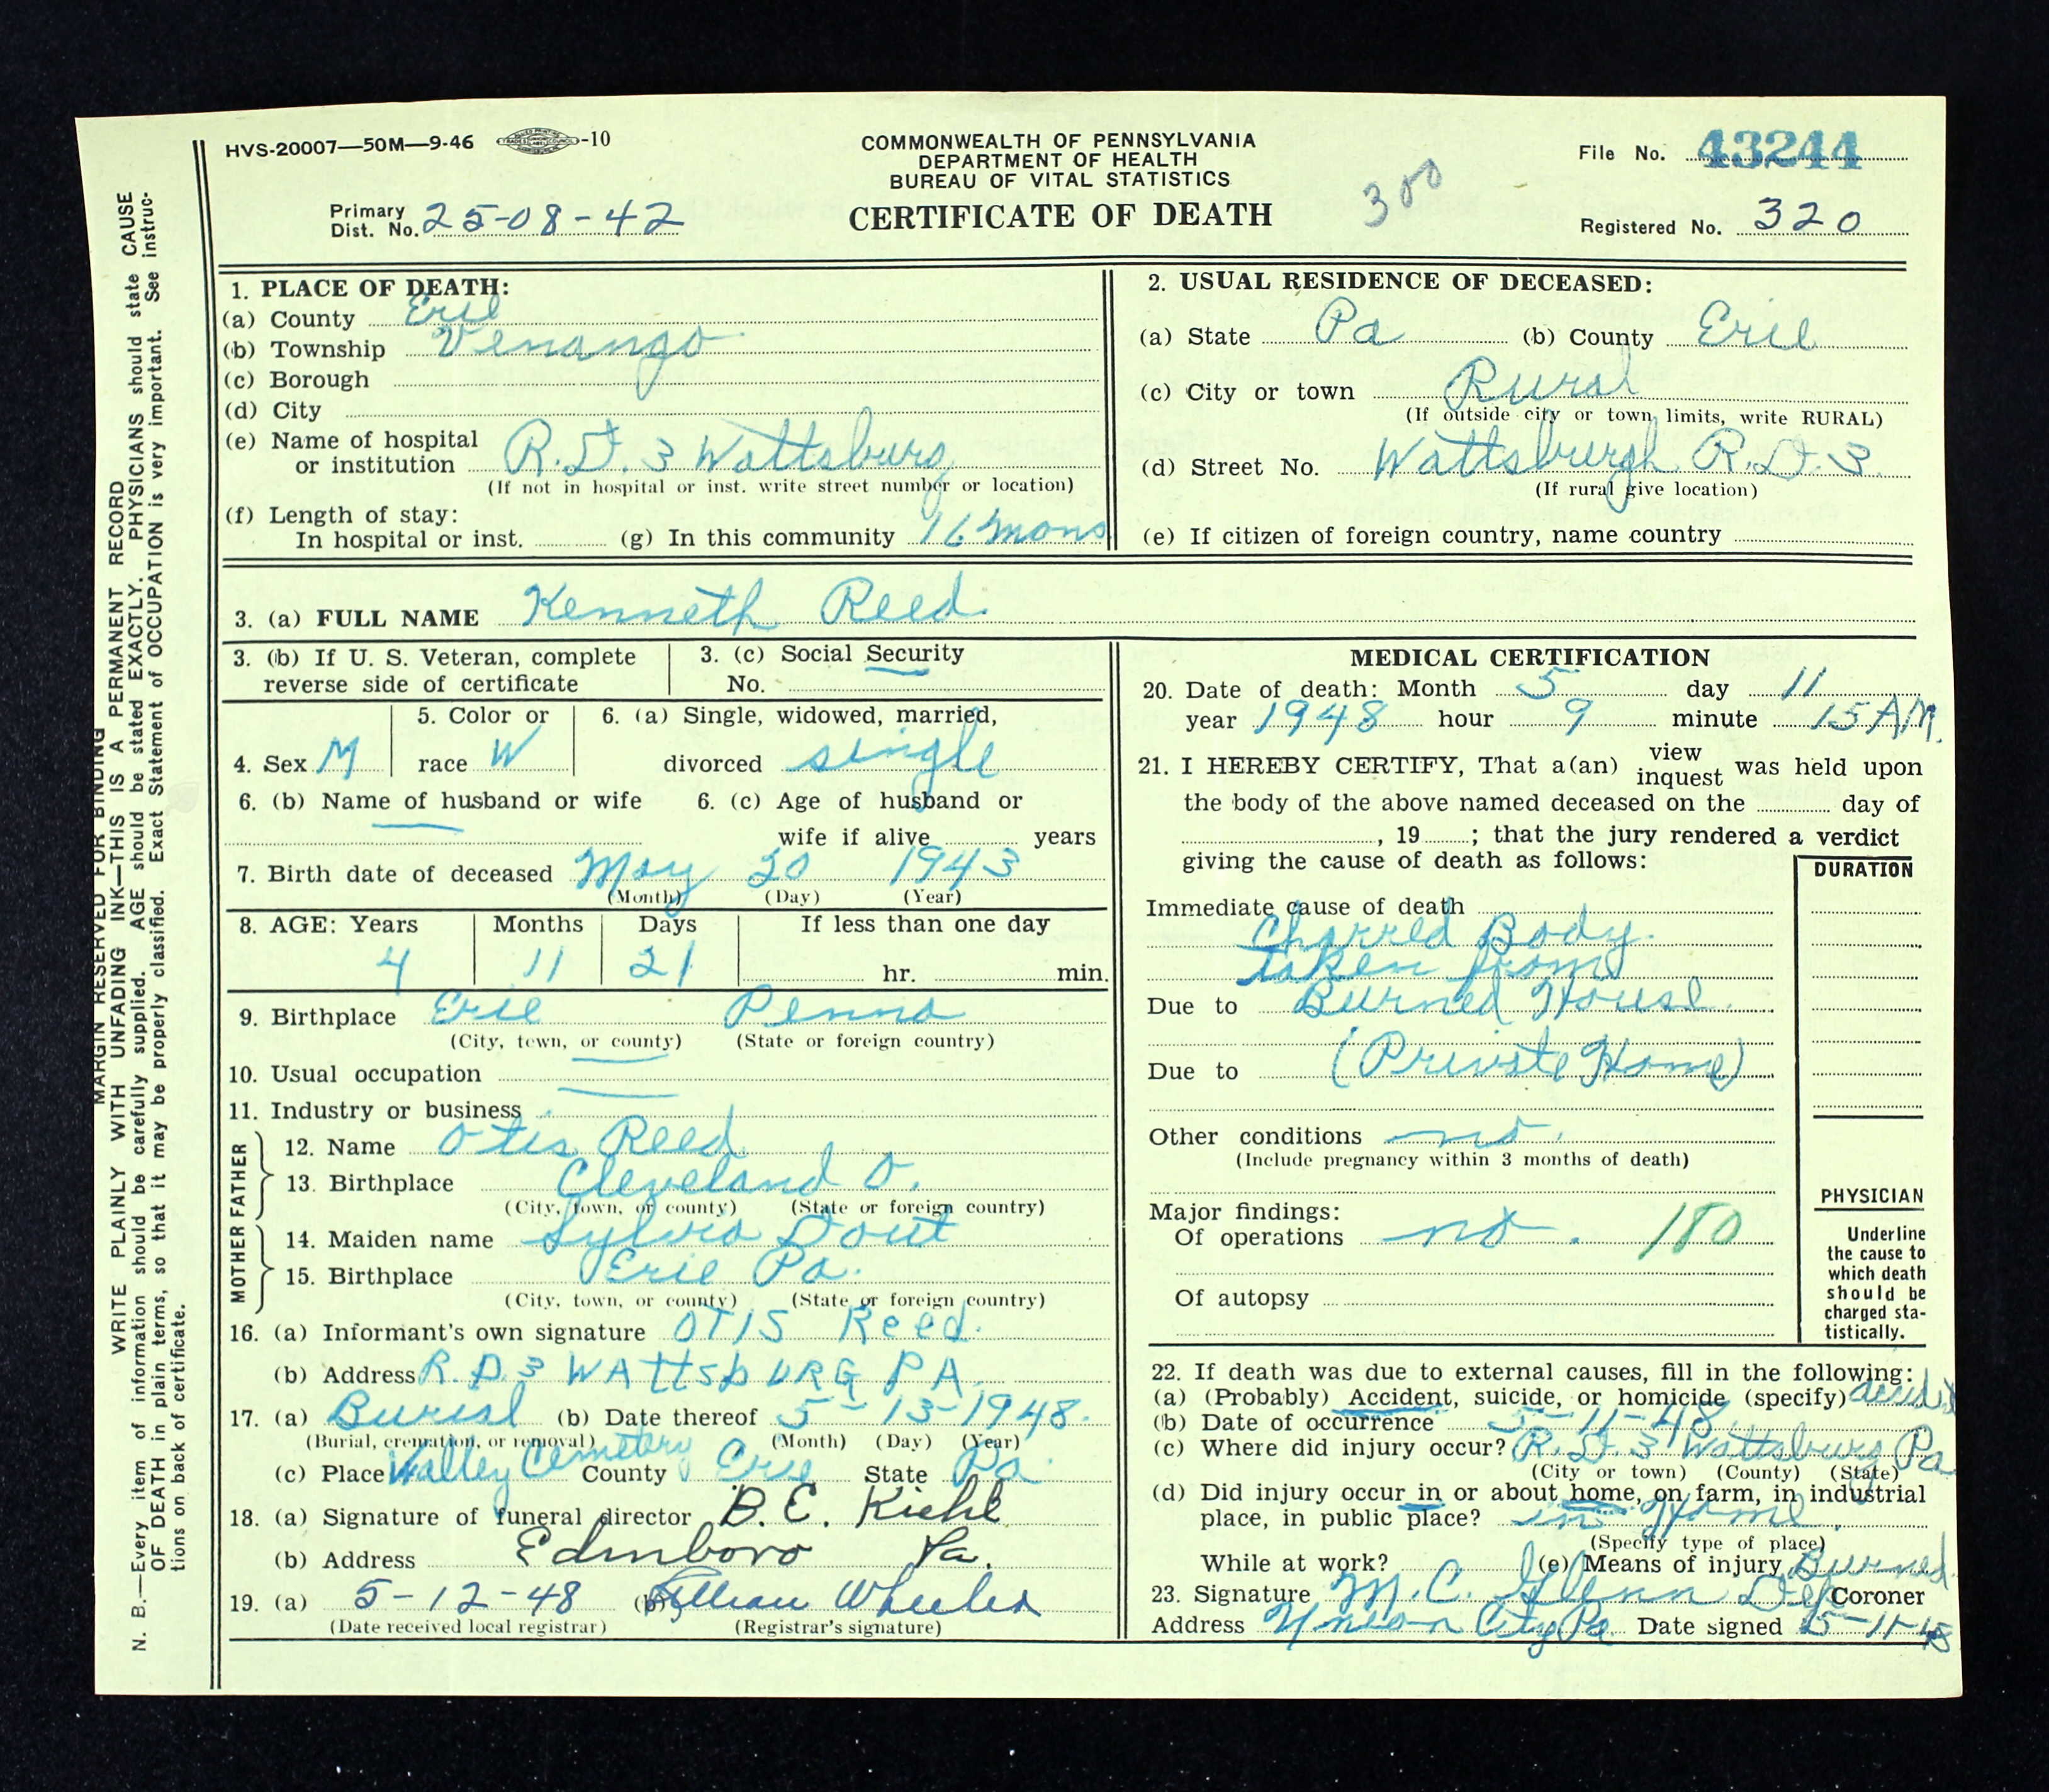 HVS-20007—50M—9-46 -10
COMMONWEALTH OF PENNSYLVANIA
DEPARTMENT OF HEALTH
BUREAU OF VITAL STATISTICS
CERTIFICATE OF DEATH
300
File No. 43244
Primary
Dist. No. 25-08-42
Registered No. 320
1. PLACE OF DEATH:
(a) County Erie
(b) Township Venango
(c) Borough
(d) City
(e) Name of hospital
or institution R.D. 3 Wattsburg
(If not in hospital or inst. write street number or location)
(f) Length of stay:
In hospital or inst. (g) In this community 16 mons
2. USUAL RESIDENCE OF DECEASED:
(a) State Pa (b) County Erie
(c) City or town Rural
(If outside city or town limits, write RURAL)
(d) Street No. Wattsburgh R.D. 3
(If rural give location)
(e) If citizen of foreign country, name country
3. (a) FULL NAME Kenneth Reed
3. (b) If U. S. Veteran, complete
reverse side of certificate
3. (c) Social Security
No.
4. Sex M
5. Color or
race W
6. (a) Single, widowed, married,
divorced single
6. (b) Name of husband or wife
6. (c) Age of husband or
wife if alive years
7. Birth date of deceased May 20 1943
(Month) (Day) (Year)
8. AGE: Years Months Days If less than one day
4 11 21 hr. min.
9. Birthplace Erie Penna
(City, town, or county) (State or foreign country)
10. Usual occupation
11. Industry or business
FATHER
12. Name Otis Reed
13. Birthplace Cleveland O.
(City, town, or county) (State or foreign country)
MOTHER
14. Maiden name Sylvia Dout
15. Birthplace Erie Pa.
(City, town, or county) (State or foreign country)
16. (a) Informant's own signature OTIS Reed.
(b) Address R.D.3 WAttsbURG PA.
17. (a) Burial (b) Date thereof 5-13-1948.
(Burial, cremation, or removal) (Month) (Day) (Year)
(c) Place Valley Cemetery County Erie State Pa.
18. (a) Signature of funeral director B. E. Kiehl
(b) Address Edinboro Pa.
19. (a) 5-12-48 (b) Lillian Wheeler
(Date received local registrar) (Registrar's signature)
MEDICAL CERTIFICATION
20. Date of death: Month 5 day 11
year 1948 hour 9 minute 15 A.M.
21. I HEREBY CERTIFY, That a(an) view inquest was held upon
the body of the above named deceased on the day of
, 19 ; that the jury rendered a verdict
giving the cause of death as follows:
DURATION
Immediate cause of death
Charred Body
taken from
Due to Burned House
Due to (Private Home)
Other conditions no.
(Include pregnancy within 3 months of death)
Major findings:
Of operations no. 180
Of autopsy
PHYSICIAN
Underline
the cause to
which death
should be
charged sta-
tistically.
22. If death was due to external causes, fill in the following:
(a) (Probably) Accident, suicide, or homicide (specify)
(b) Date of occurrence 5-11-48
(c) Where did injury occur? R.D. 3 Wattsburg Pa
(City or town) (County) (State)
(d) Did injury occur in or about home, on farm, in industrial
place, in public place? in Home.
(Specify type of place)
While at work? (e) Means of injury Burned
23. Signature M. C. Glenn Dep Coroner
Address Union City Pa. Date signed 5-11-48
MARGIN RESERVED FOR BINDING
WRITE PLAINLY WITH UNFADING INK—THIS IS A PERMANENT RECORD
N. B.—Every item of information should be carefully supplied. AGE should be stated EXACTLY. PHYSICIANS should state CAUSE
OF DEATH in plain terms, so that it may be properly classified. Exact Statement of OCCUPATION is very important. See instruc-
tions on back of certificate.